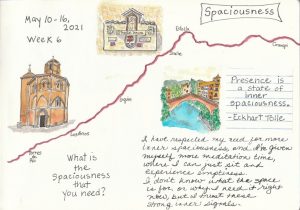 May 10-16,
2021
Week 6
Spaciousness
Estella
Presence is
a state of
inner
spaciousness.
-Eckhart Tolle
Torres
del Rio
What is
the
spaciousness
that
you need?
I have respected my need for more
inner spaciousness, and I've given
myself more meditation time,
where I can just sit and
experience emptiness.
I don't know what the space
is for or why I need it right
now, but I trust these
strong inner signals.